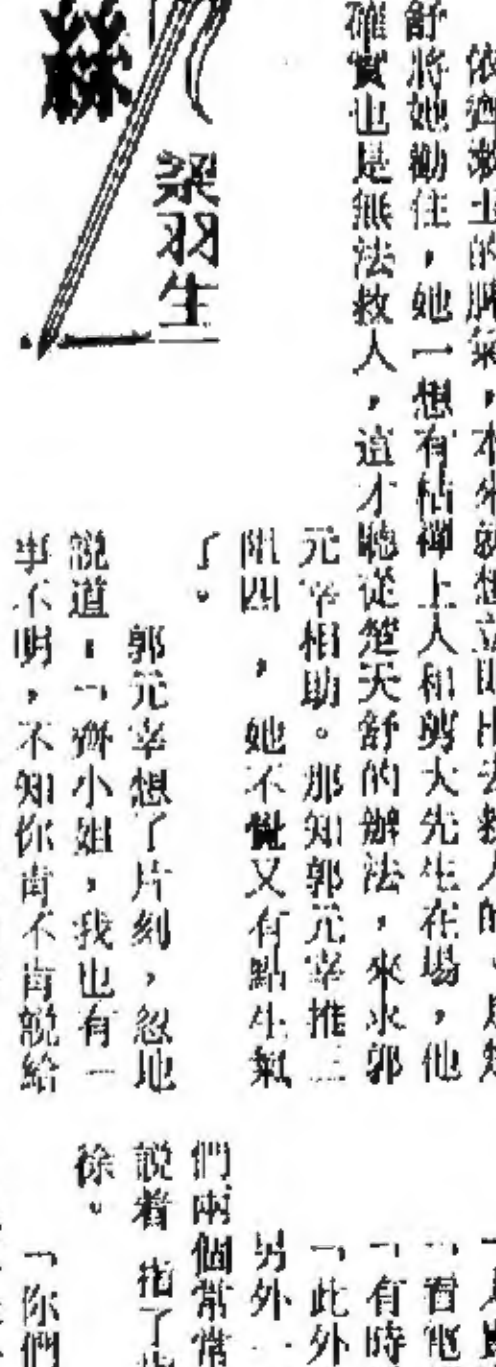 依齊漱玉的脾氣，本來就想立即出去救人的，是楚
舒將她勸住，她一想有枯禪上人和剪大先生在場，他
確實也是無法救人，這才聽從楚天舒的辦法，來求郭
元宰相助。那知郭元宰推三
阻四，她不覺又有點生氣
了。
郭元宰想了片刻，忽地
說道：「齊小姐，我也有一
事不明，不知你肯不肯說給
絲
梁羽生
「看電
「有時
「此外
另外一
們兩個常常
說着 指了
徐。
「你們